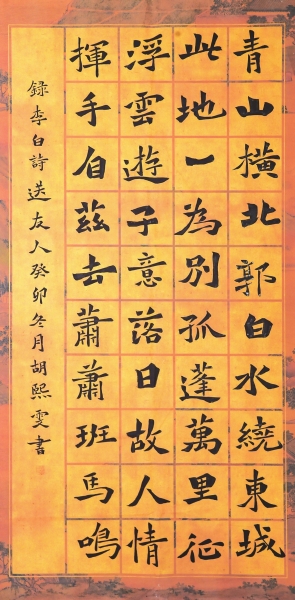 青山橫北郭白水繞東城
此地一為別孤蓬萬里征
浮雲遊子意落日故人情
揮手自茲去蕭蕭班馬鳴
録李白詩送友人癸卯冬月胡熙雯書